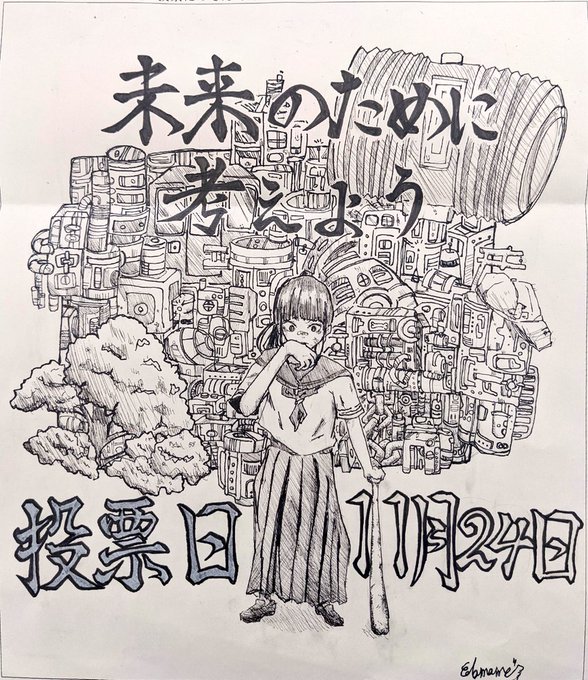 未来のために
考えよう
投票日 11月24日